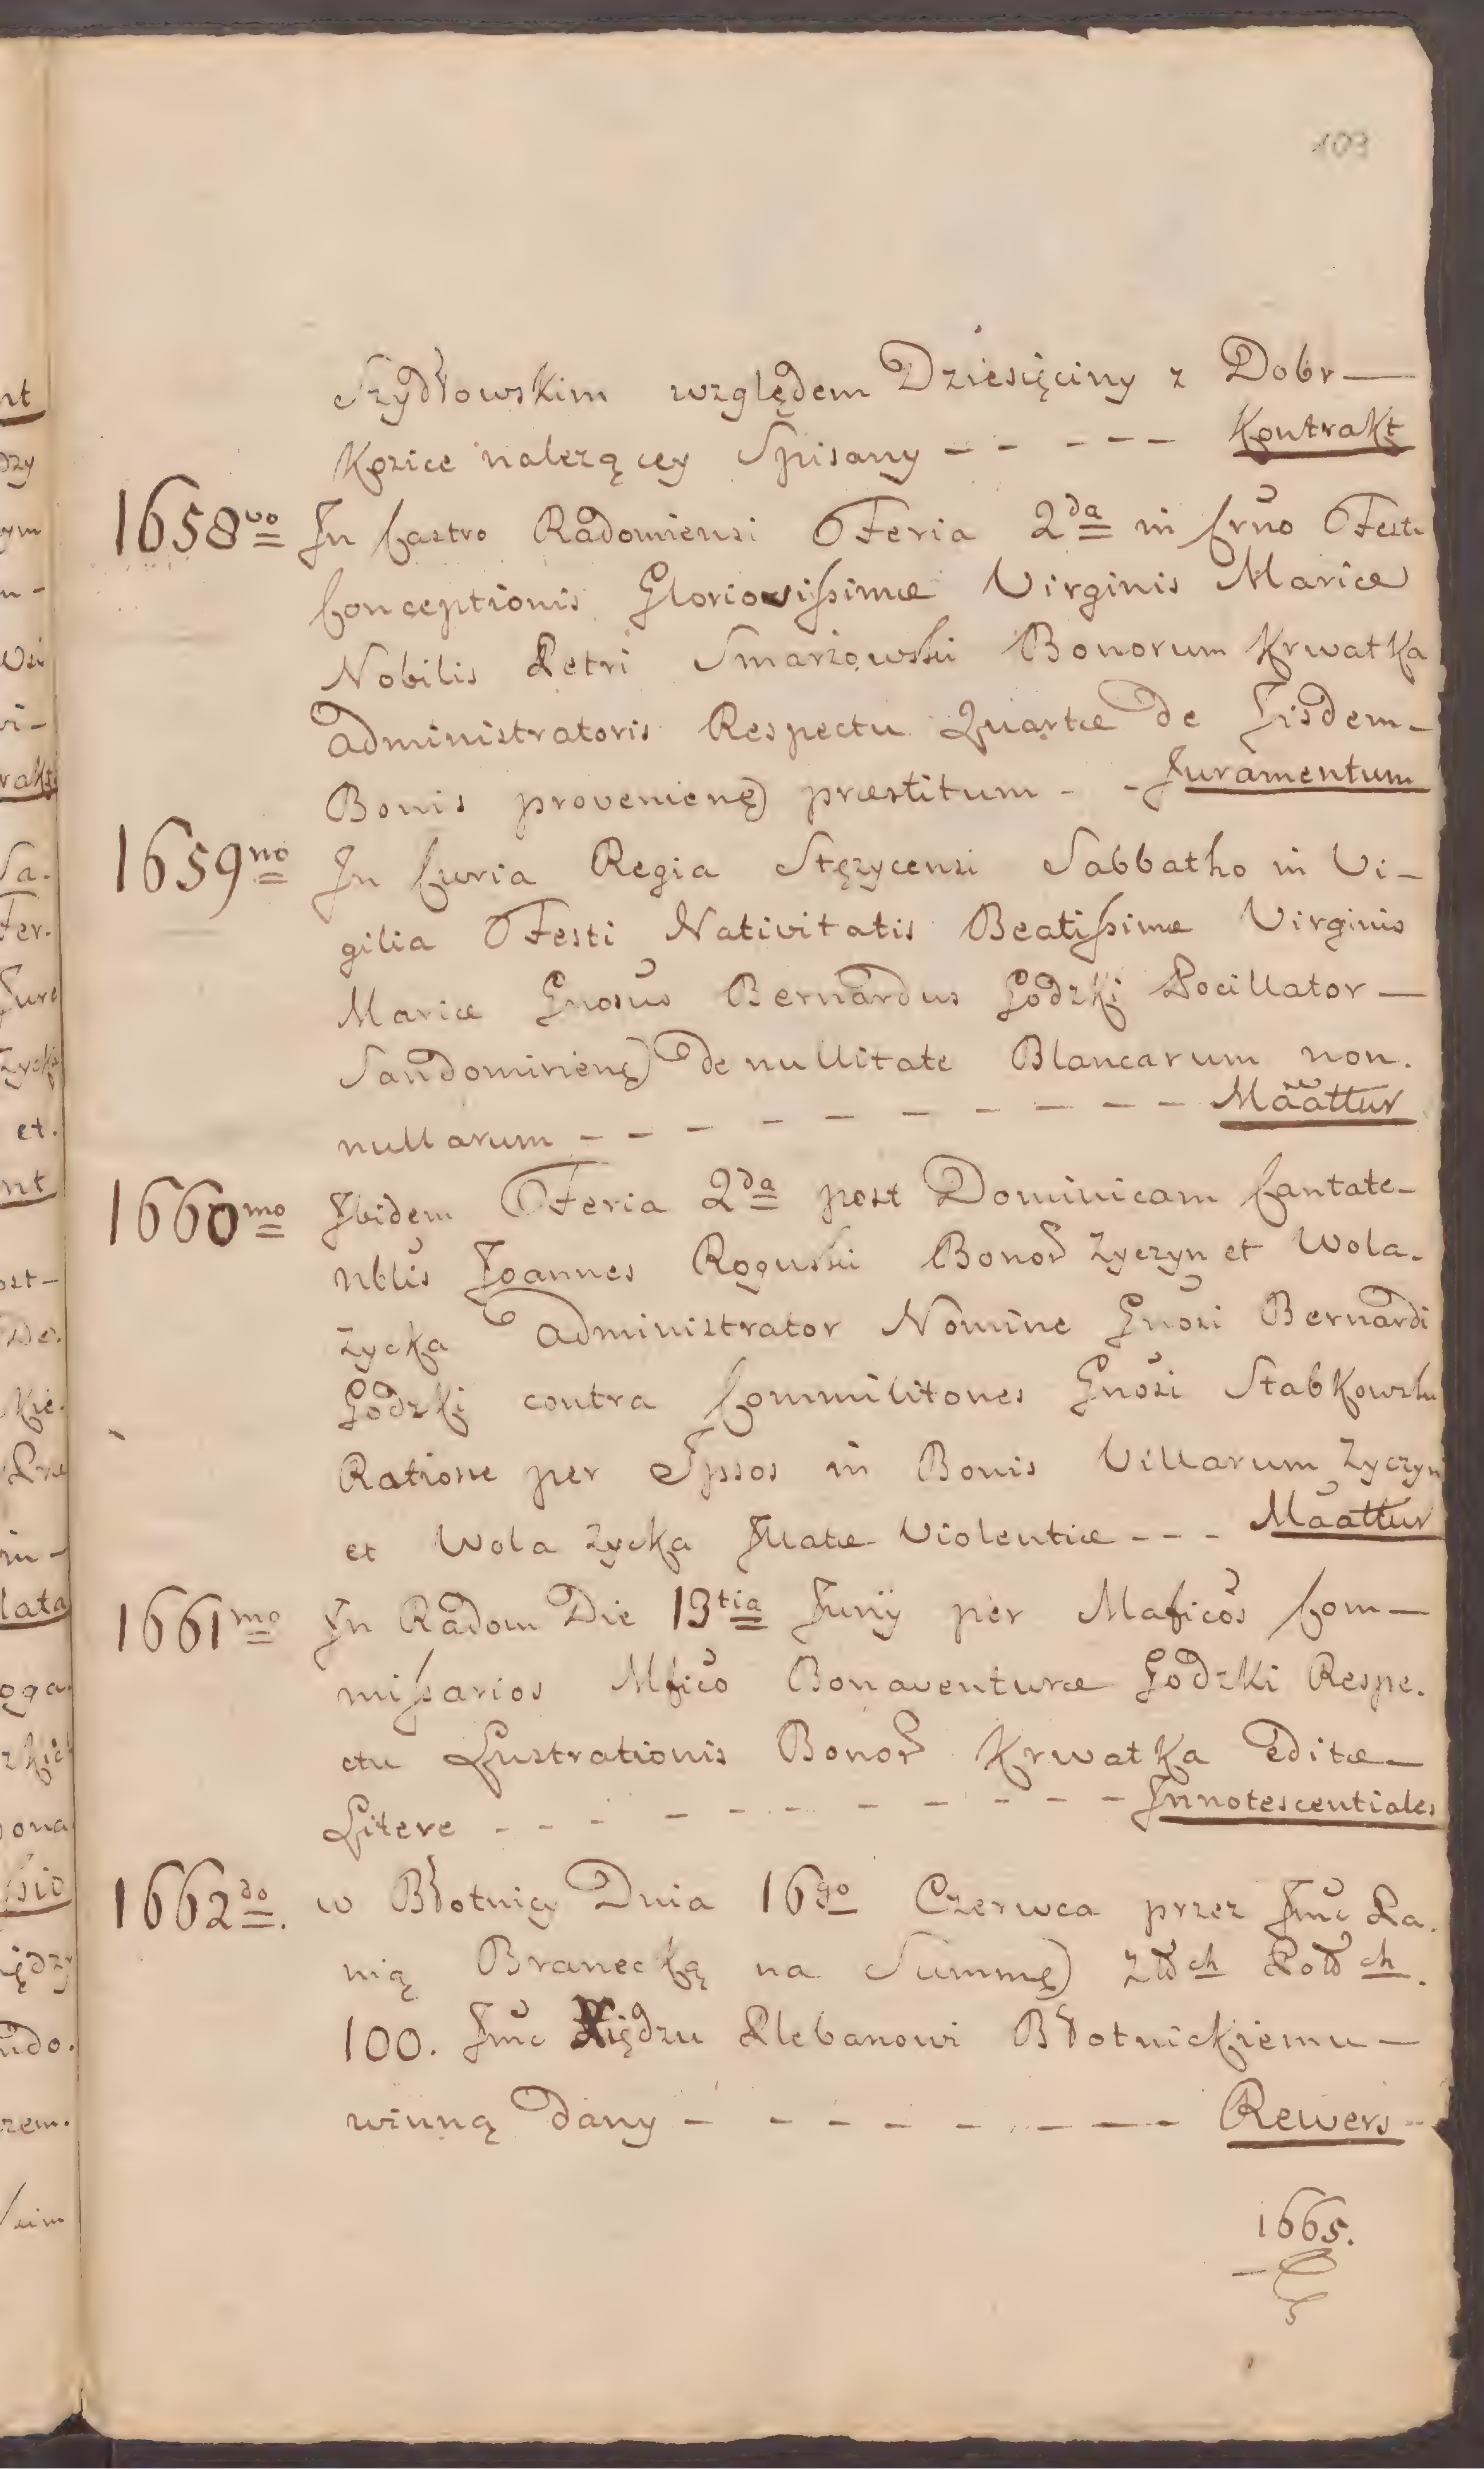 109
Szydłowskim względem Dziesięciny z Dobr —
Kozice należącey Spisany - - - - - Kontrakt
1658vo In Castro Radomiensi Feria 2da in Crũo Festi
Conceptionis Gloriosissimæ Virginis Mariæ
Nobilis Petri Smarzowski Bonorum Krwatka
Administratoris Respectu Quartæ de Iisdem -
Bonis provenienę) præstitum - - Juramentum
1659no In Curia Regia Stężycensi Sabbatho in Vi -
gilia Festi Nativitatis Beatissimæ Virginis
Mariæ Gnosus Bernardus Godzki Pocillator —
Sandomirienę) de nullitate Blancarum non.
nullarum - - - - - - - - - Maattur
1660mo Ibidem Feria 2da post Dominicam Cantate -
Nblis Joannes Roguski Bonor Zyczyn et Wola.
Zycka Administrator Nomine Gnosi Bernardi
Godzki contra Commilitones Gnosi Stabkowski
Ratione per Ipsos in Bonis Villarum Zyczyn
et Wola Zycka Illatæ Violentiæ - - - Maattur
1661mo In Radom Die 13tia Junij per Maficos Com —
missarios Mfico Bonaventuræ Godzki Respe.
ctu Lustrationis Bonor Krwatka Editæ —
Litere - - - - - - - - - - Innotescentiales
1662do. w Błotnicy Dnia 16go Czerwca przez Jmc Pa.
nią Branecką na Summę) Złłch Polłch.
100. Jmc Xiędzu Plebanowi Błotnickiemu —
winną dany - - - - - - - - Rewers -
1665.